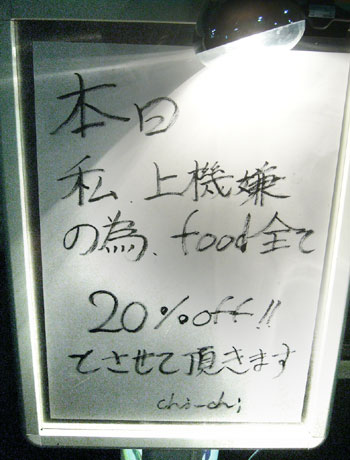 本日
私、上機嫌
の為、food全て
20%off!!
でさせて頂きます
chi-chi